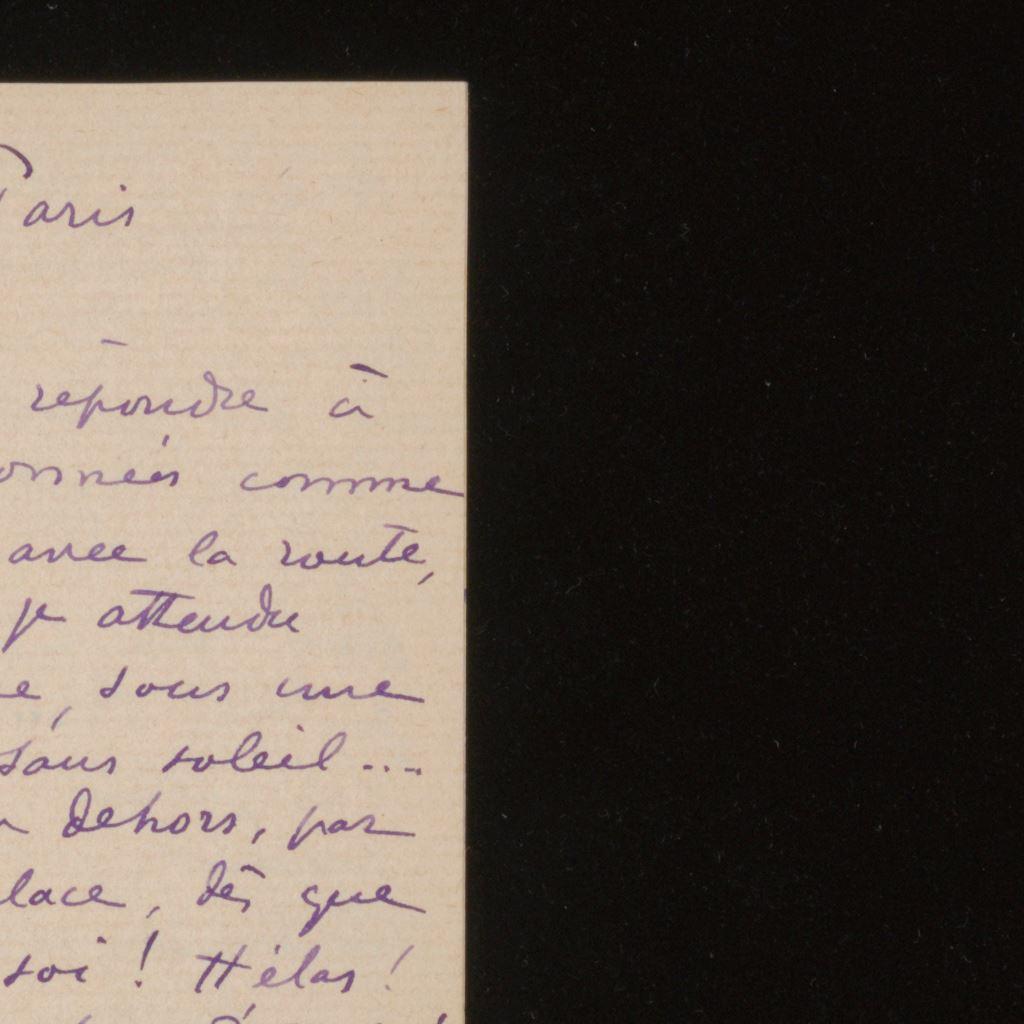 Paris
répondre à
onnées comme
avec la route,
je attendu
e, sous une
sans soleil....
dehors, par
lace, dès que
soi ! Hélas !